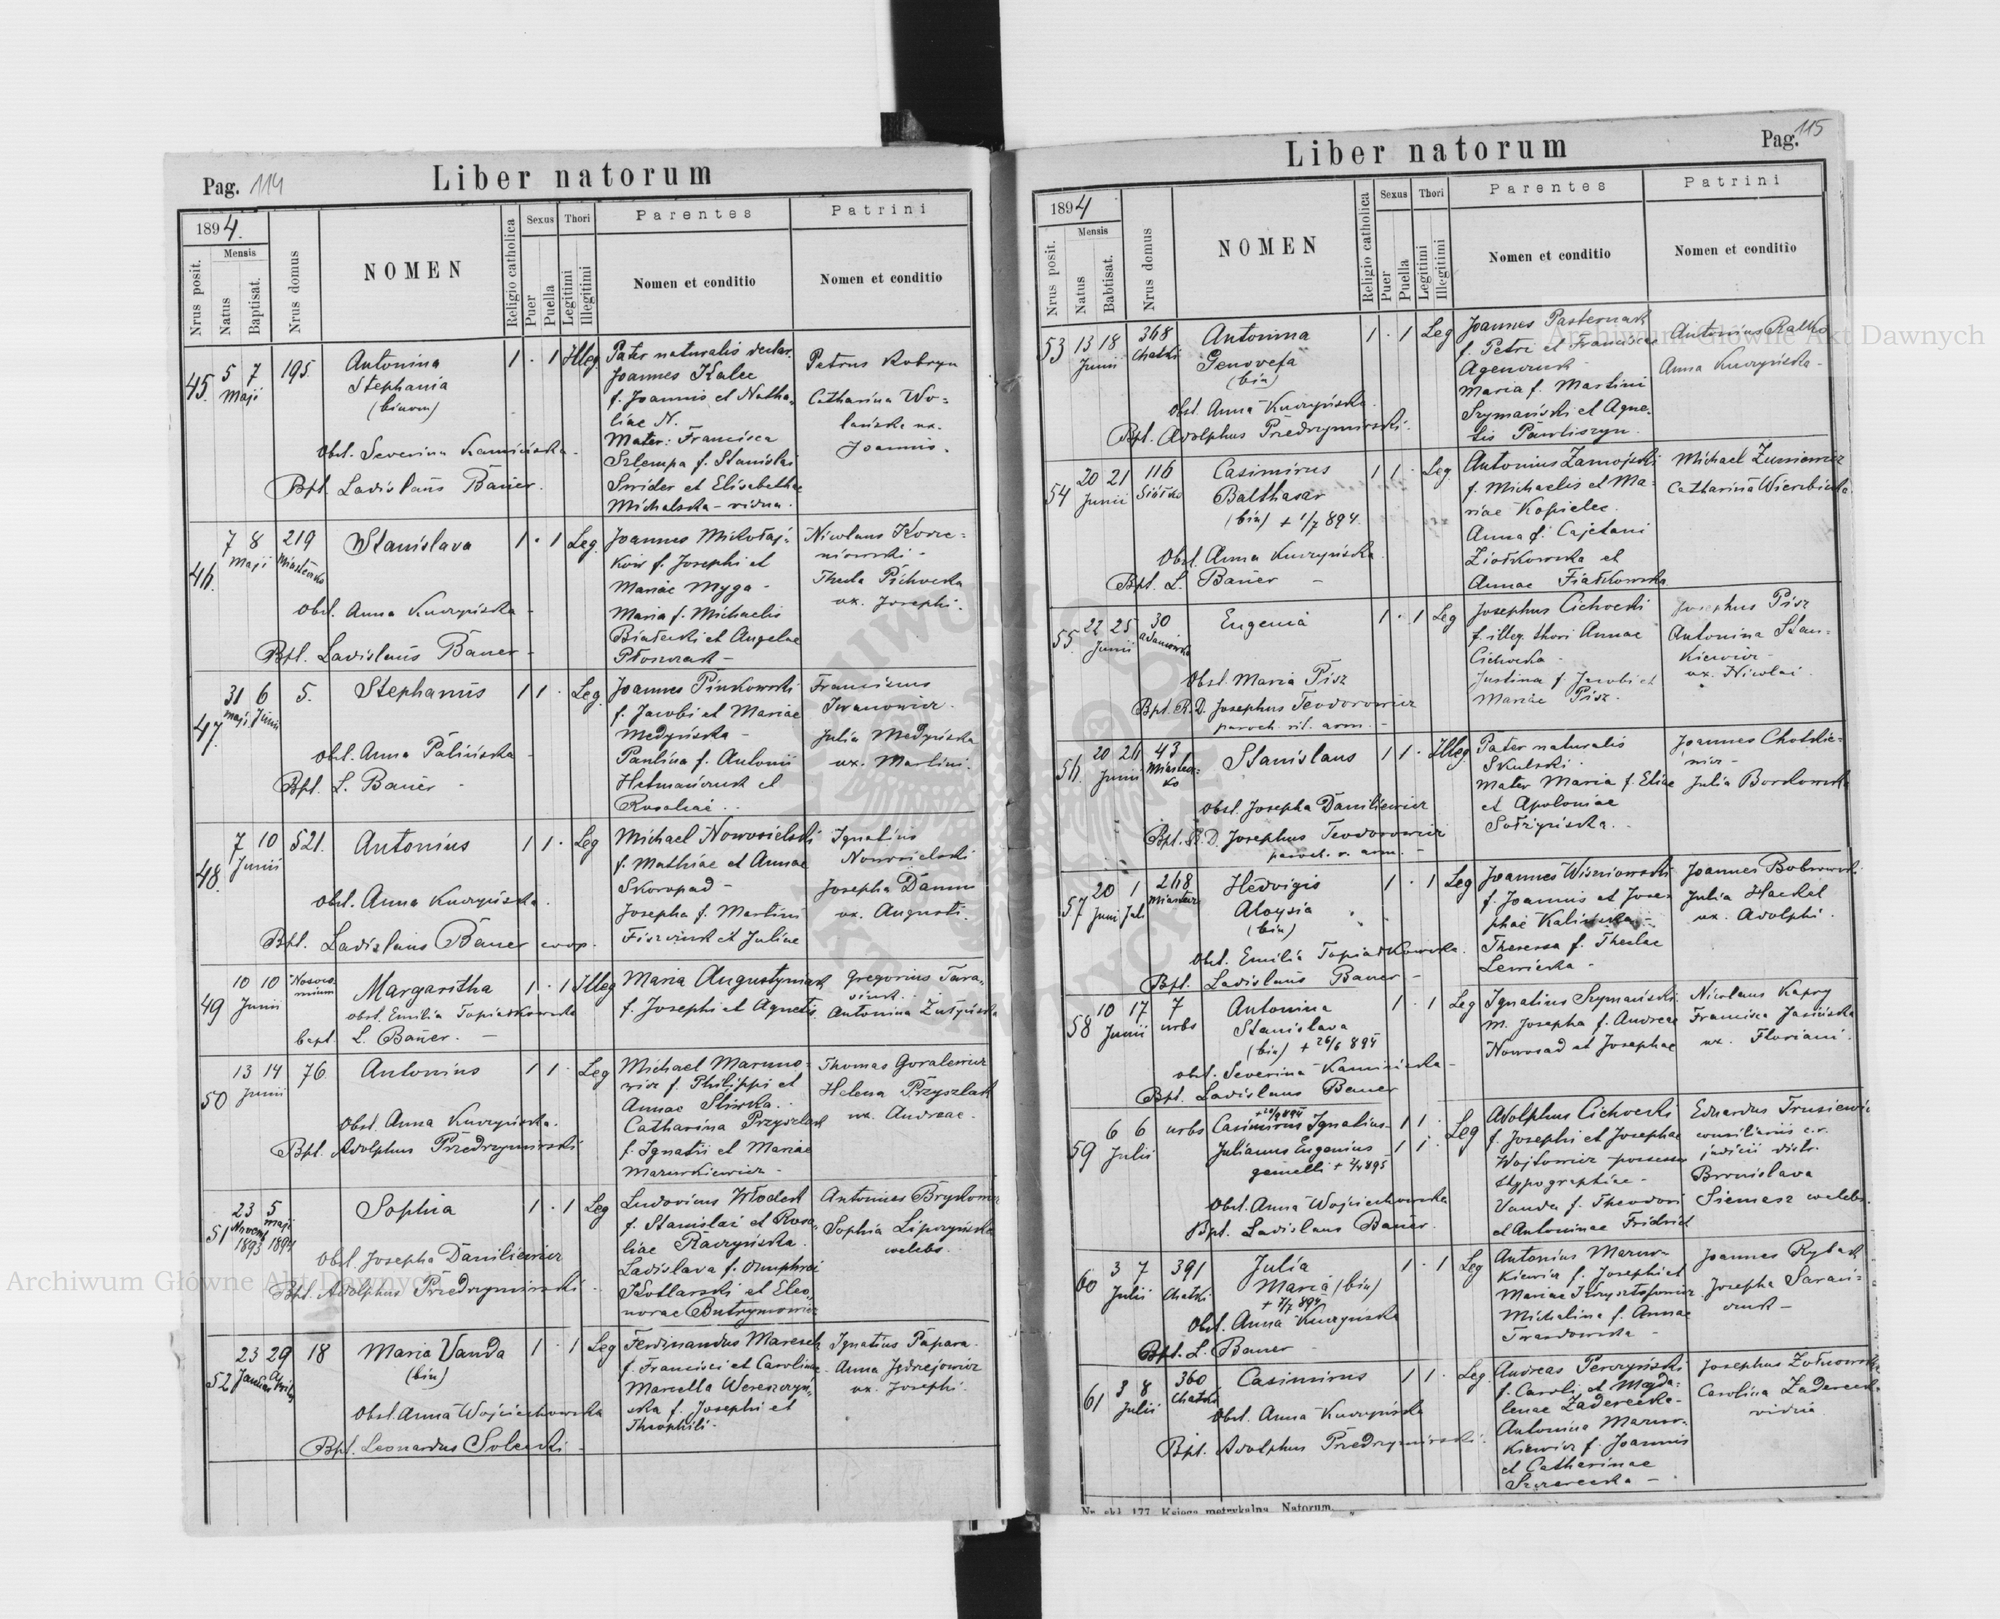 Pag. 114
Liber natorum
1894.
Nrus posit.
Mensis
Natus
Baptisat.
Nrus domus
NOMEN
Religio catholica
Sexus
Puer
Puella
Thori
Legitimi
Illegitimi
Parentes
Nomen et conditio
Patrini
Nomen et conditio
45. 5 7 Maji 195. Antonina
Stephania
(binom)
Obst. Severina Kamińska
Bpt. Ladislaus Bauer.
1 . 1 Illeg.
Pater naturalis declar.
Joannes Kalec
f. Joannis et Natha-
liae N.
Mater: Francisca
Szlempa f. Stanislai
Snider et Elisabethae
Michalska - vidua.
Petrus Kobryn
Catharina Wo-
lańska ux.
Joannis.
46. 7 8 Maji 219 Miasteczko Stanislava
Obst. Anna Kuczyńska
Bpt. Ladislaus Bauer
1 . 1 Leg.
Joannes Mikołaj-
kow f. Josephi et
Mariae Myga
Maria f. Michaelis
Białecki et Angelae
Płoszczak
Nicolaus Korze-
niowski
Thecla Pichocka
ux. Josephi.
47. 31 Maji 6 Junii 5. Stephanus
Obst. Anna Palińska
Bpt. L. Bauer
1 1 . Leg.
Joannes Pinkowski
f. Jacobi et Mariae
Medyńska
Paulina f. Antonii
Hetmańczuk et
Rosaliae
Franciscus
Iwanowicz.
Julia Medyńska
ux. Martini.
48. 7 10 Junii 521. Antonius
Obst. Anna Kuczyńska.
Bpt. Ladislaus Bauer coop.
1 1 . Leg
Michael Nowosielski
f. Mathiae et Annae
Skoropad
Josepha f. Martini
Fiszczuk et Juliae
Ignatius
Nowosielski
Josepha Damm
ux. Augusti.
49 10 10 Junii Nosoco-
mium Margaritha
obst. Emilia Topiatkowska
bapt. L. Bauer.
1 . 1 Illeg
Maria Augustyniak
f. Josephi et Agnetis
Gregorius Tara-
siuk
Antonina
50 13 14 Junii 76 Antonius
Obst. Anna Kuczyńska.
Bpt. Adolphus Przedrzymirski
1 1 . Leg
Michael Maruno-
wicz f. Philippi et
Annae Sliwka.
Catharina Przyszlak
f. Ignatii et Mariae
Mazurkiewicz
Thomas Goralewicz
Helena Przyszlak
ux. Andreae.
51 23 Novemb 1893 5 Maji 1894 Sophia
Obst. Josepha Daniliewicz
Bpt. Adolphus Przedrzymirski
1 . 1 Leg
Ludovicus Włodek
f. Stanislai et Rosa-
liae Raczyńska.
Ladislava f. Onuphrii
Kotlarski et Eleo-
norae Butrymowicz
Antonius
Sophia Lipczyńska
caelebs.
52 23 Januar 29 Aprilis 18 Maria Vanda
(bin)
Obst. Anna Wojciechowska
Bpt. Leonardus Solecki
1 . 1 Leg
Ferdinandus Maresch
f. Francisci et Carolinae
Marcella Wereszczyń-
ska f. Josephi et
Theophili.
Ignatius Papara.
Anna Jędrzejowicz
ux. Josephi.
Liber natorum
Pag. 115
1894
Nrus posit.
Mensis
Natus
Babtisat.
Nrus domus
NOMEN
Religio catholica
Sexus
Puer
Puella
Thori
Legitimi
Illegitimi
Parentes
Nomen et conditio
Patrini
Nomen et conditio
53 13 18 Junii 368 Chatki Antonina
Genovefa
(bin)
Obst. Anna Kuczyńska.
Bpt. Adolphus Przedrzymirski.
1 . 1 Leg
Joannes Pasternak
f. Petri et Franciscae
Maria f. Martini
Szymański et Agne-
tis Pawliszyn.
Antonius Ratko
Anna Kuczyńska
54 20 21 Junii 116 Siółko Casimirus
Balthasar
(bin) + 1/7 894.
Obst. Anna Kuczyńska
Bpt. L. Bauer
1 1 . Leg
Antonius Zamojski
f. Michaelis et Ma-
riae Kopielec.
Anna f. Cajetani
Ziołkowska et
Annae Fiałkowska
Michael
Catharina Wierzbicka
55. 22 25 Junii 30 Adamówka Eugenia
Obst. Maria Pisz
Bpt. R. D. Josephus Teodorowicz
paroch. rit. arm.
1 . 1 Leg
Josephus Cichocki
f. illeg. thori Annae
Cichocka
Justina f. Jacobi et
Mariae Pisz.
Josephus Pisz
Antonina Stan-
kiewicz
ux. Nicolai.
56. 20 26 Junii 43 Miastecz-
ko Stanislaus
Obst. Josepha Daniliewicz
Bpt. R. D. Josephus Teodorowicz
paroch. r. arm.
1 1 . Illeg
Pater naturalis
Skulski.
Mater Maria f. Eliae
et Apoloniae
Sołżyńska.
Joannes Chotkie-
wicz
Julia Bordowska
57 20 Juni 1 Jul. 268 Hedvigis
Aloysia
(bin)
Obst. Emilia Topiatkowska.
Bpt. Ladislaus Bauer
1 . 1 Leg
Joannes Wiszniowski
f. Joannis et Jose-
phae
Theresa f. Theclae
Lewicka
Joannes Bobrowski
Julia Haeckel
ux. Adolphi.
58 10 17 Junii 7 urbs Antonina
Stanislava
(bin) + 26/6 894
obst. Severina Kamińska
Bpt. Ladislaus Bauer
1 . 1 Leg
Ignatius Szymański.
M. Josepha f. Andreae
Nowosad et Josephae
Nicolaus Kapry
Francisca Jasińska
ux. Floriani.
59 6 6 Julii urbs Casimirus Ignatius
Julianus Eugenius
gemelli
Obst. Anna Wojciechowska
Bpt. Ladislaus Bauer.
1 1 . Leg
1 1 .
Adolphus Cichocki
f. Josephi et Josephae
Wojtowicz possessor
typographiae
Vanda f. Theodori
et Antoninae Fridrich
Eduardus Trusiewicz
consiliarii c.r.
judicii distr.
Bronislava
Siemasz caelebs.
60 3 7 Julii 391 Chatki Julia
Maria (bin)
+ 7/7 894
Obst. Anna Kuczyńska
Bpt. L. Bauer
1 . 1 Leg
Antonius Mazur-
kiewicz f. Josephi et
Mariae Krzysztofowicz
Michalina f. Annae
Twardowska
Joannes Rybak
Josepha Sarań-
czuk
61 3 8 Julii 360 Chatki Casimirus
Obst. Anna Kuczyńska
Bpt. Adolphus Przedrzymirski.
1 1 . Leg
Andreas Perczyński
f. Caroli et Magda-
lenae Zaderecka
Antonina Mazur-
kiewicz f. Joannis
et Catharinae
Josephus Żołnowski
Carolina Zaderecka
vidua.
Nr. skł. 177. Księga metrykalna. Natorum.
Archiwum Główne Akt Dawnych
Archiwum Główne Akt Dawnych